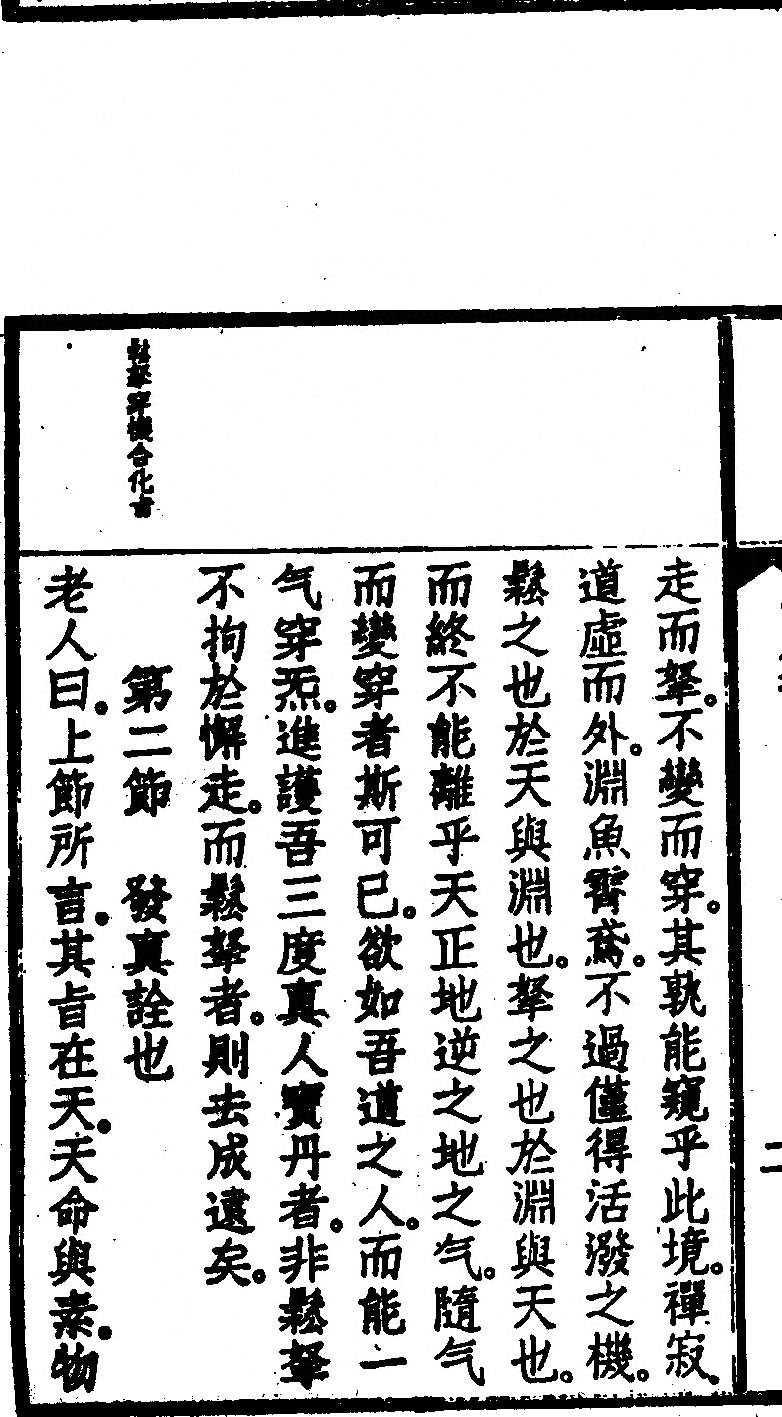 走而拏。不變而穿。其孰能窺乎此境。禪寂。
道虛而外。淵魚霄鳶。不過僅得活潑之機。
鬆之也於天與淵也。拏之也於淵與天也。
而終不能離乎天正地逆之地之气。隨气
而變穿者斯可已。欲如吾道之人。而能一
气穿炁。進護吾三度真人寶丹者。非鬆拏
不拘於懈走。而鬆拏者。則去成遠矣。
鬆拏穿機合化書
第二節　發真詮也
老人曰。上節所言。其旨在天。天命與素。物
二